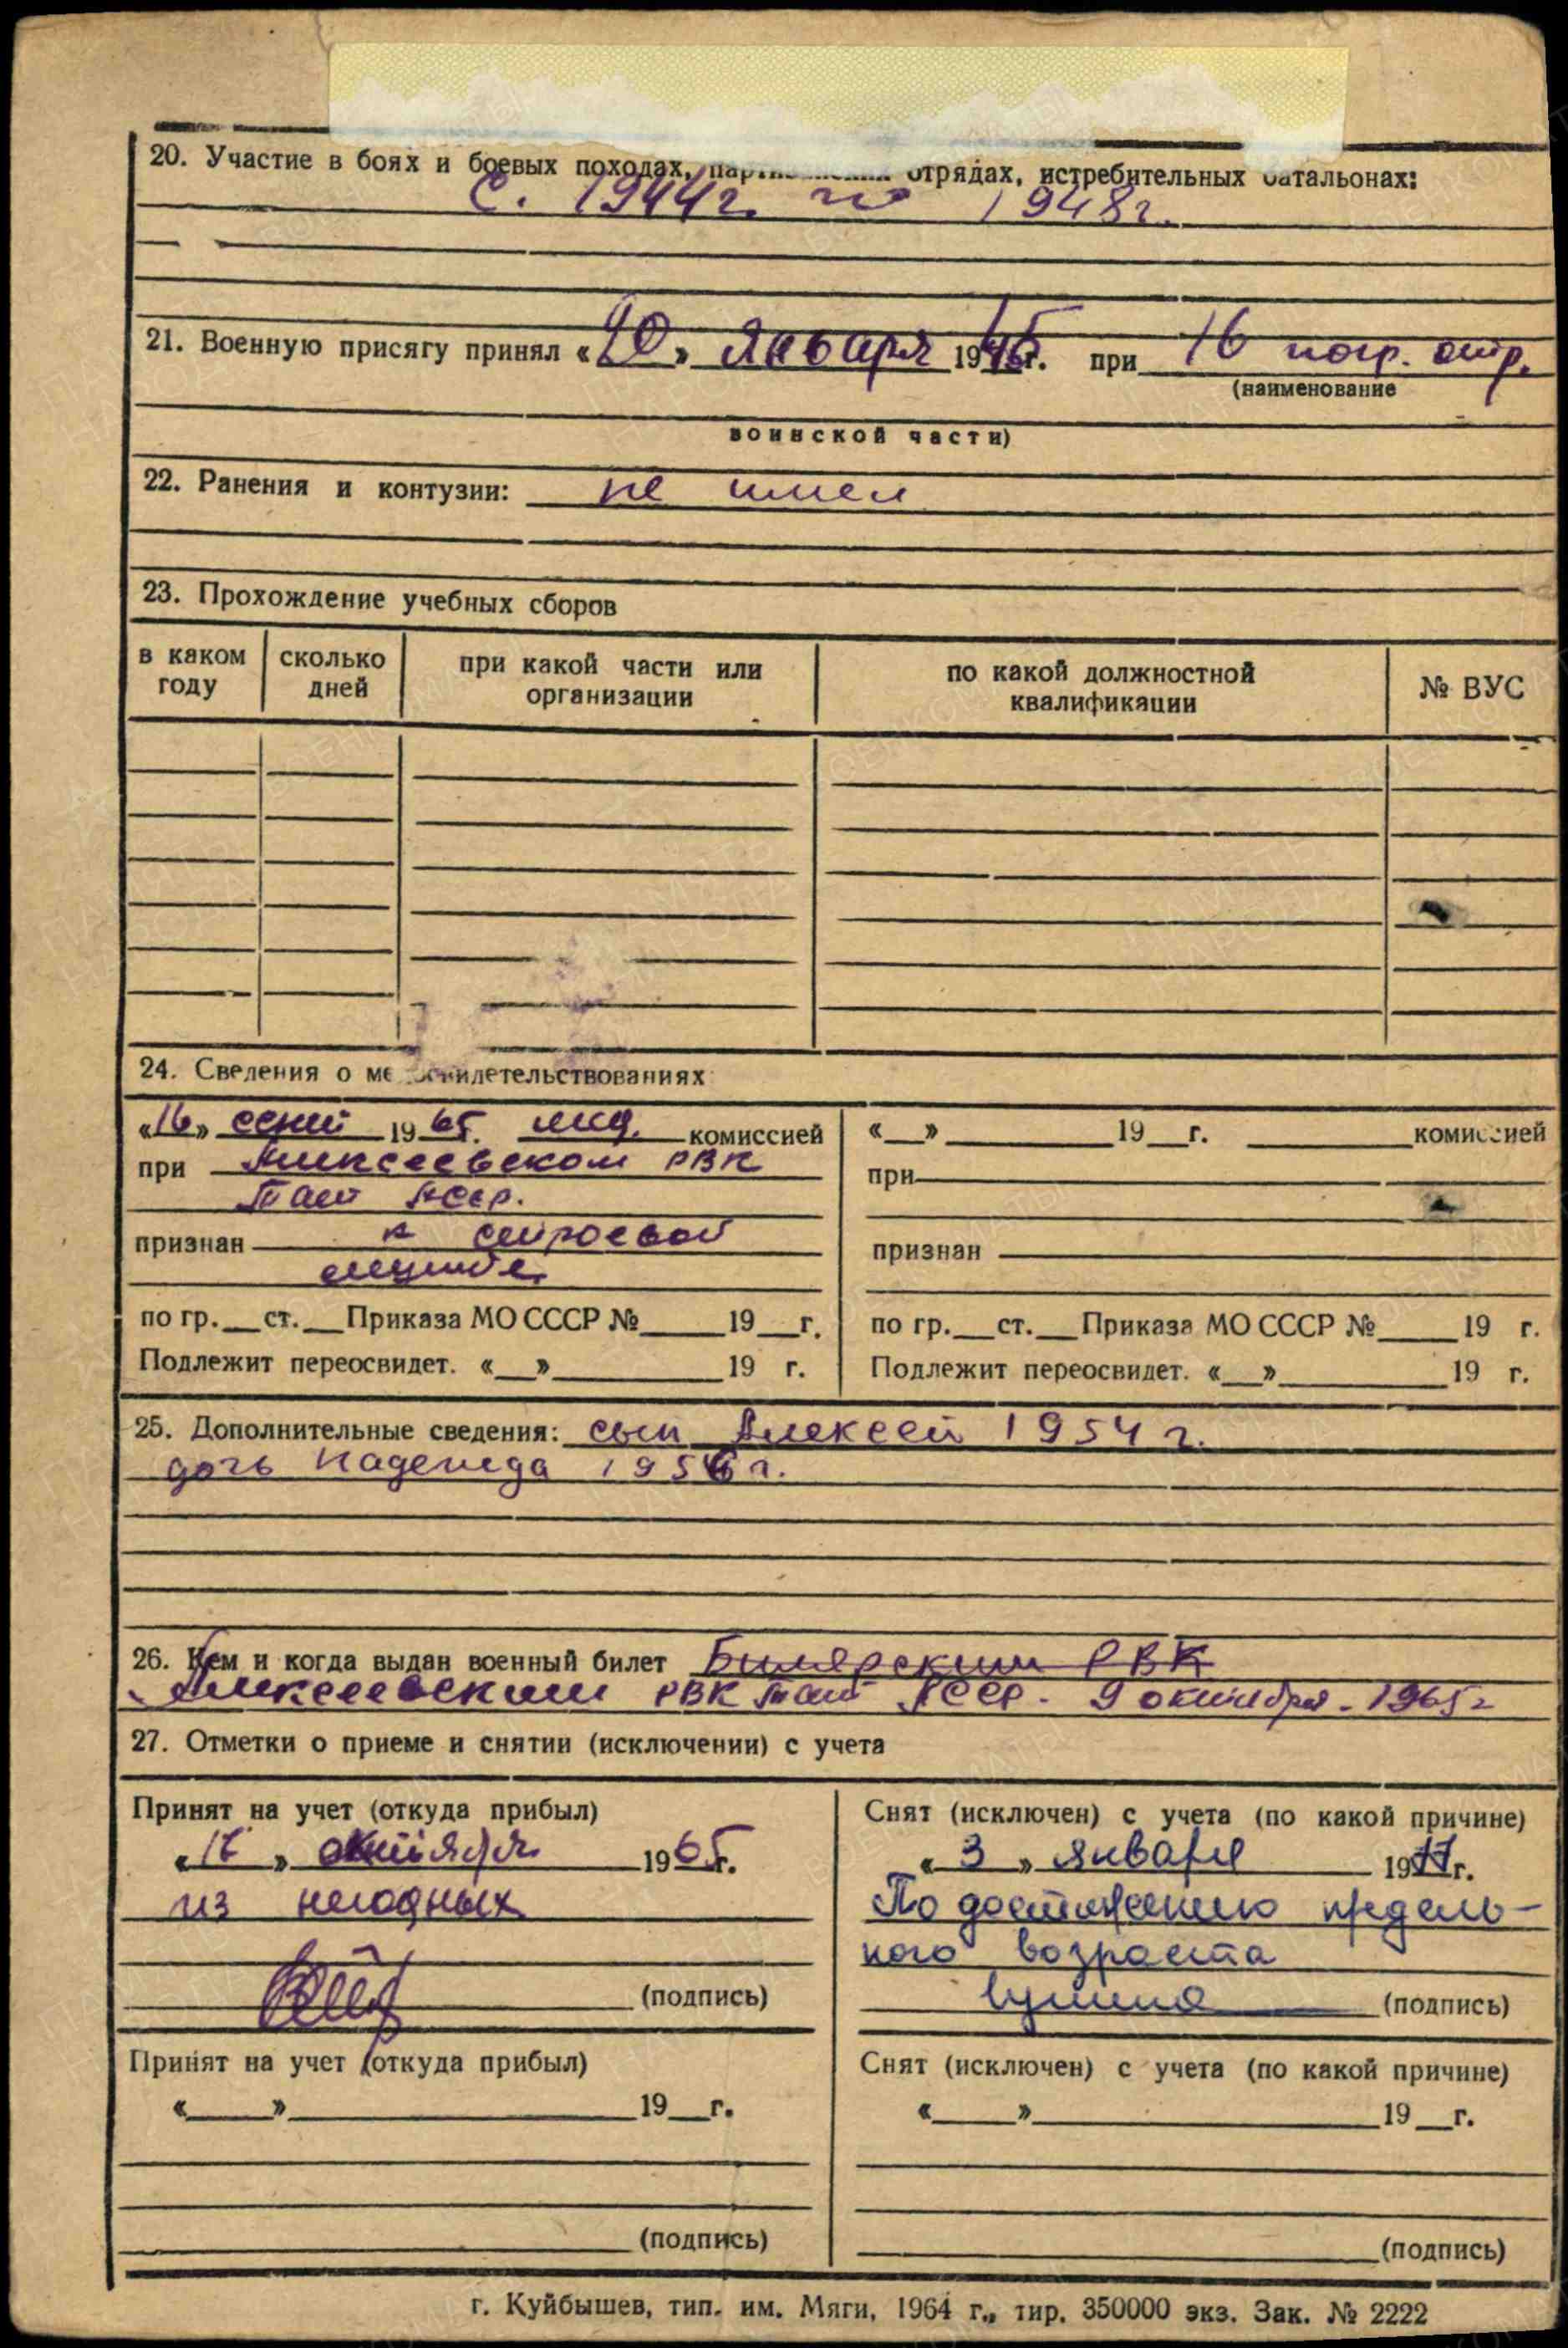 20. Участие в боях и боевых походах, отрядах, истребительных батальонах:
с. 1944г. по 1948г.
21. Военную присягу принял «20» Января 1945г. при 16 погр. отр.
(наименование
воинской части)
22. Ранения и контузии: не имел
23. Прохождение учебных сборов
в каком году
сколько дней
при какой части или организации
по какой должностной квалификации
№ ВУС
24. Сведения о ме освидетельствованиях
«16» сент 1965г. мед. комиссией
при Алексеевском РВК
Тат АССР.
признан к строевой
службе.
по гр. ст. Приказа МО СССР № 19 г.
Подлежит переосвидет. « » 19 г.
« » 19 г. комиссией
при
признан
по гр. ст. Приказа МО СССР № 19 г.
Подлежит переосвидет. « » 19 г.
25. Дополнительные сведения: сын Алексей 1954 г.
дочь Надежда 1956 г.
26. Кем и когда выдан военный билет Билярским РВК
Алексеевским РВК Тат АССР. 9 октября - 1965г
27. Отметки о приеме и снятии (исключении) с учета
Принят на учет (откуда прибыл)
октября 1965г.
из негодных
(подпись)
Снят (исключен) с учета (по какой причине)
«3» января 1977г.
По достижению предель-
ного возраста
(подпись)
Принят на учет (откуда прибыл)
« » 19 г.
(подпись)
Снят (исключен) с учета (по какой причине)
« » 19 г.
(подпись)
г. Куйбышев, тип. им. Мяги, 1964 г., тир. 350000 экз. Зак. № 2222